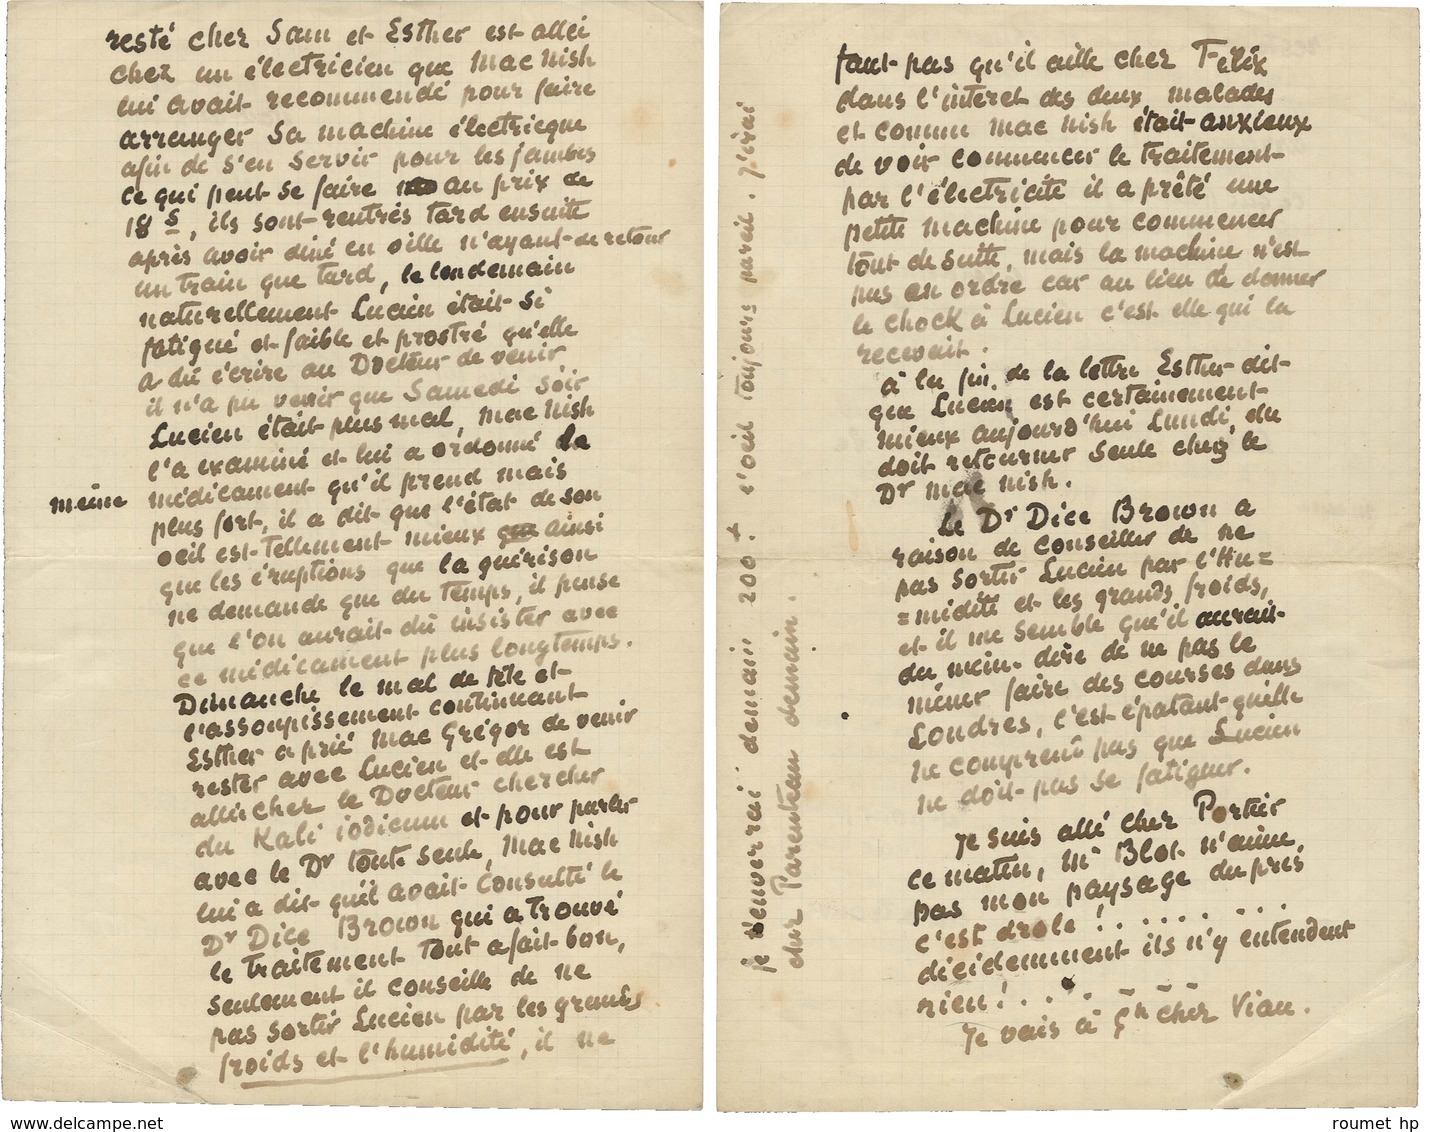 resté chez Sam et Esther est allé
chez un électricien que Mac Nish
lui avait recommendé pour faire
arranger sa machine électrique
afin de s'en servir pour les jambes
ce qui peut se faire au prix de
18 s, ils sont rentrés tard ensuite
après avoir diné en ville n'ayant de retour
un train que tard, le lendemain
naturellement Lucien était si
fatigué et faible et prostré qu'elle
a dû écrire au Docteur de venir
il n'a pu venir que Samedi soir
Lucien était plus mal, Mac Nish
l'a examiné et lui a ordonné le
même médicament qu'il prend mais
plus fort, il a dit que l'état de son
oeil est tellement mieux ainsi
que les éruptions que la guérison
ne demande que du temps, il pense
que l'on aurait dû insister avec
ce médicament plus longtemps.
Dimanche le mal de tête et
l'assoupissement continuant
Esther a prié Mac Grégor de venir
rester avec Lucien et elle est
allée chez le Docteur chercher
du Kali iodicum et pour parler
avec le Dr toute seule, Mac Nish
lui a dit qu'il avait consulté le
Dr Dice Brown qui a trouvé
le traitement tout a fait bon,
seulement il conseille de ne
pas sortir Lucien par les grands
froids et l'humidité, il ne
faut pas qu'il aille chez Félix
dans l'interet des deux malades
et comme Mac Nish était anxieux
de voir commencer le traitement
par l'électricité il a prêté une
petite machine pour commencer
tout de suite, mais la machine n'est
pas en ordre car au lieu de donner
le chock à Lucien c'est elle qui la
recevait.
à la fin de la lettre Esther dit
que Lucien est certainement
mieux aujourd'hui Lundi, elle
doit retourner seule chez le
Dr Mac Nish.
Le Dr Dice Brown a
raison de conseiller de ne
pas sortir Lucien par l'Hu=
=midité et les grands froids,
et il me semble qu'il aurait
du mein dire de ne pas le
mener faire des courses dans
Londres, c'est épatant qu'elle
ne comprenne pas que Lucien
ne doit pas se fatiguer.
Je suis allé chez Portier
ce matin, Mr Blot n'aime
pas mon paysage du près
c'est drole ! . . . . . . . .
décidemment ils n'y entendent
rien ! . . . . . . .
Je vais à Gn chez Viau.
je t'enverrai demain 200 f. + l'oeil toujours pareil. j'irai
chez Parenteau demain.
roumet hp